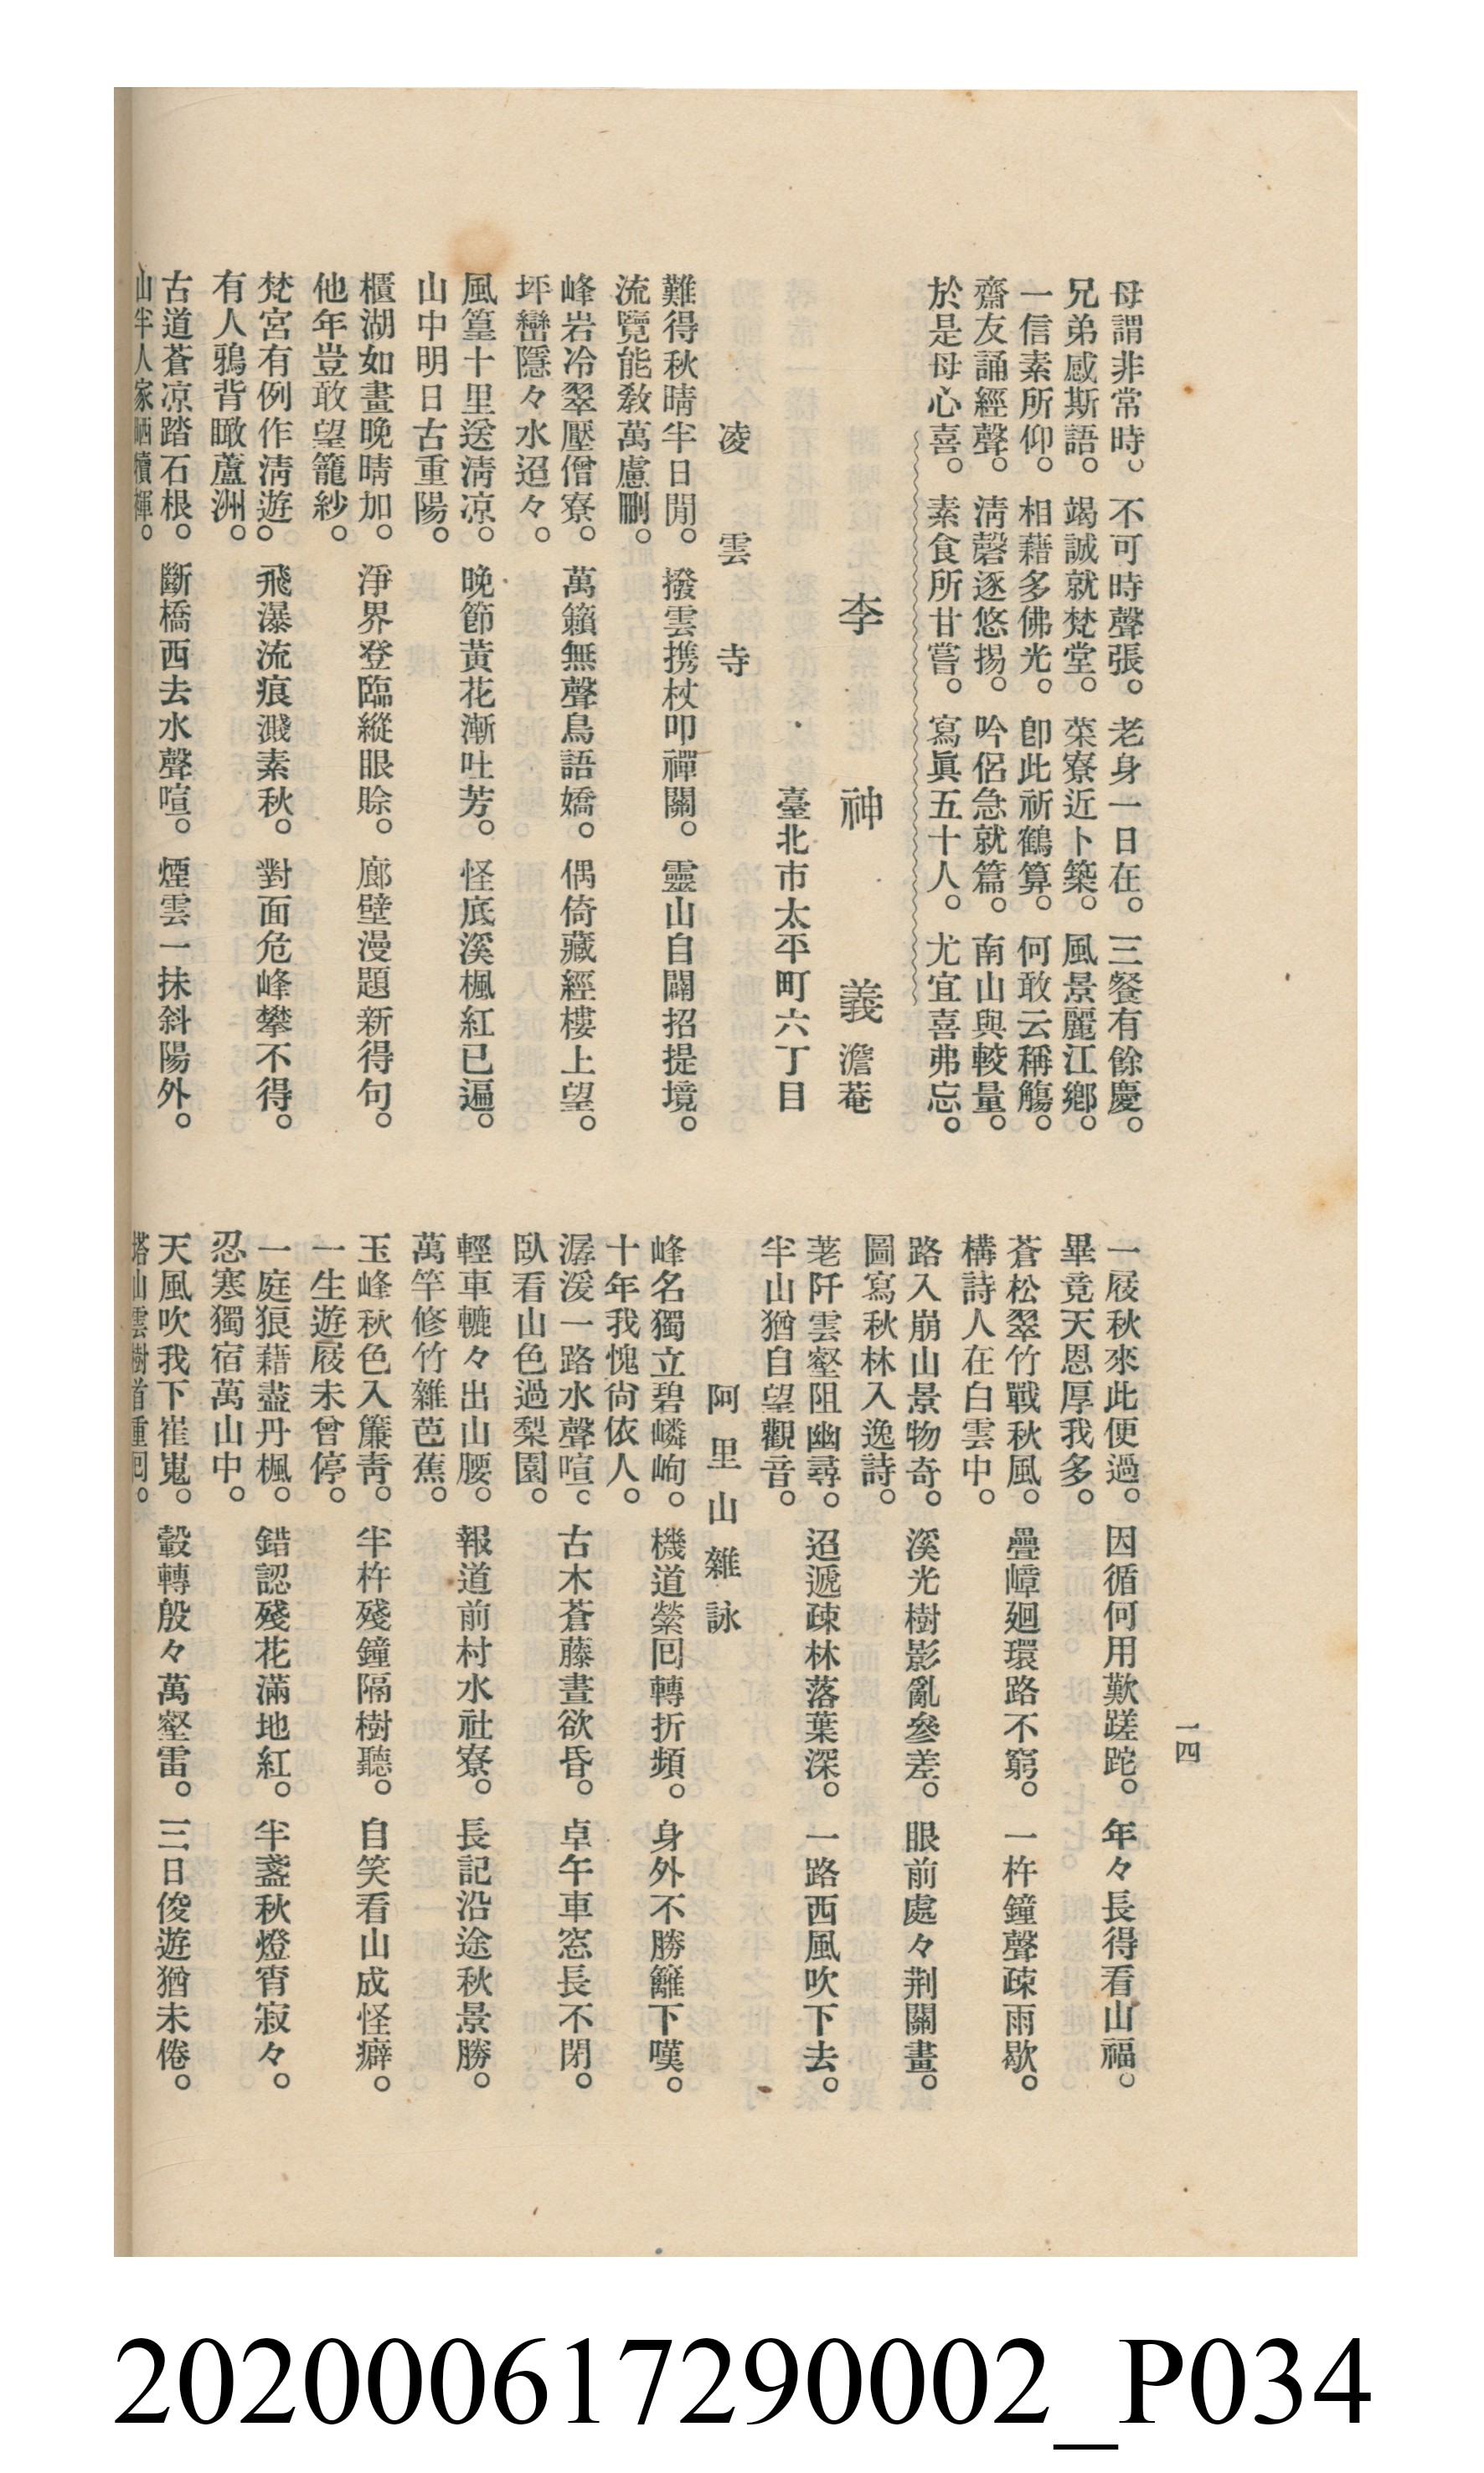 一四
母謂非常時。不可時聲張。老身一日在。三餐有餘慶。
兄弟感斯語。竭誠就梵堂。菜寮近卜築。風景麗江鄉。
一信素所仰。相藉多佛光。卽此祈鶴算。何敢云稱觴。
齋友誦經聲。淸磬逐悠揚。吟侶急就篇。南山與較量。
於是母心喜。素食所甘嘗。寫眞五十人。尤宜喜弗忘。
李神義 澹菴
臺北市太平町六丁目
凌雲寺
難得秋晴半日閒。撥雲携杖叩禪關。靈山自闢招提境。
流覽能敎萬慮刪。
峰岩冷翠壓僧寮。萬籟無聲鳥語嬌。偶倚藏經樓上望。
坪巒隱々水迢々。
風篁十里送淸凉。晩節黃花漸吐芳。怪底溪楓紅已遍。
山中明日古重陽。
櫃湖如畫晩晴加。淨界登臨縱眼賒。廊壁漫題新得句。
他年豈敢望籠紗。
梵宮有例作淸遊。飛瀑流痕濺素秋。對面危峰攀不得。
有人鴉背瞰蘆洲。
古道蒼凉踏石根。斷橋西去水聲喧。煙雲一抹斜陽外。
山半人家晒犢褌。
一屐秋來此便過。因循何用歎蹉跎。年々長得看山福。
畢竟天恩厚我多。
蒼松翠竹戰秋風。疊嶂廻環路不窮。一杵鐘聲疎雨歇。
構詩人在白雲中。
路入崩山景物奇。溪光樹影亂參差。眼前處々荆關畫。
圖寫秋林入逸詩。
荖阡雲壑阻幽尋。迢遞疎林落葉深。一路西風吹下去。
半山猶自望觀音。
阿里山雜詠
峰名獨立碧嶙峋。機道縈回轉折頻。身外不勝籬下嘆。
十年我愧尙依人。
潺湲一路水聲喧。古木蒼藤晝欲昏。卓午車窓長不閉。
臥看山色過梨園。
輕車轆々出山腰。報道前村水社寮。長記沿途秋景勝。
萬竿修竹雜芭蕉。
玉峰秋色入簾靑。半杵殘鐘隔樹聽。自笑看山成怪癖。
一生遊屐未曾停。
一庭狼藉盡丹楓。錯認殘花滿地紅。半盞秋燈宵寂々。
忍寒獨宿萬山中。
天風吹我下崔嵬。轂轉殷々萬壑雷。三日俊遊猶未倦。
塔山雲樹首重回。
202000617290002_P034